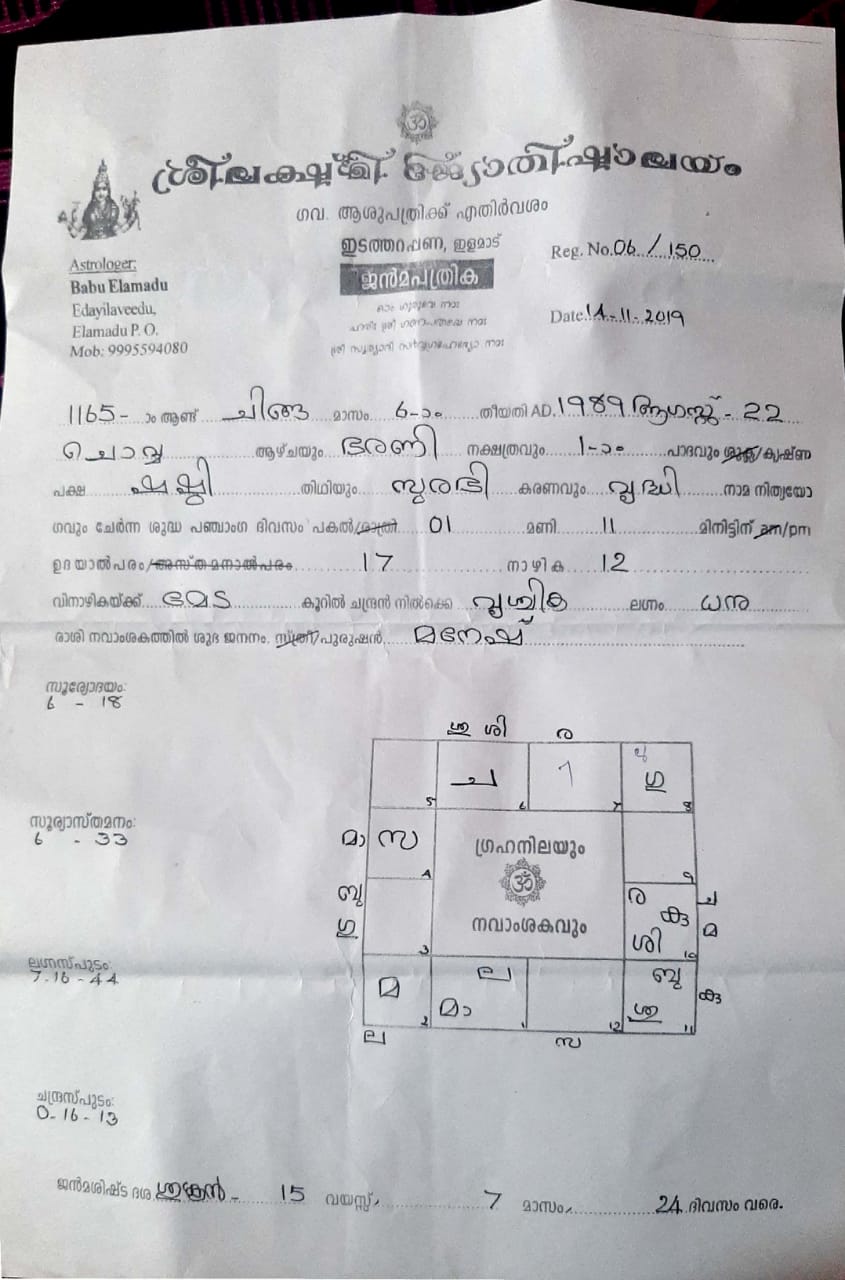 ശ്രീലക്ഷ്മി ജ്യോതിഷാലയം
ഗവ. ആശുപത്രിക്ക് എതിർവശം
ഇടത്തറപ്പണ, ഇളമാട്
Reg. No.06/150
ജൻമപത്രിക
Astrologer:
Babu Elamadu
Edayilaveedu,
Elamadu P. O.
Mob: 9995594080
Date.14-11-2019
1165- ാം ആണ്ട് ചിങ്ങ മാസം 6-ാം തീയതി AD.1989 ആഗസ്റ്റ് - 22
ചൊവ്വ ആഴ്ചയും ഭരണി നക്ഷത്രവും 1-ാം പാദവും ശുക്ല/കൃഷ്ണ
പക്ഷ ഷഷ്ഠി തിഥിയും സുരഭി കരണവും വൃദ്ധി നാമ നിത്യയോ
ഗവും ചേർന്ന ശുദ്ധ പഞ്ചാംഗ ദിവസം പകൽ/രാത്രി 01 മണി 11 മിനിട്ടിന് am/pm
ഉദയാൽപരം/അസ്തമനാൽപരം 17 നാഴിക 12
വിനാഴികയ്ക്ക് മേട കൂറിൽ ചന്ദ്രൻ നിൽക്കെ വൃശ്ചിക ലഗ്നം ധനു
രാശി നവാംശകത്തിൽ ശുഭ ജനനം. സ്ത്രീ/പുരുഷൻ മനേഷ്
സൂര്യോദയം:
6 - 18
സൂര്യാസ്തമനം:
6 - 33
ലഗ്നസ്ഫുടം:
7-16-44
ചന്ദ്രസ്ഫുടം:
0-16-13
ശു ശി ര
5 ച 6 7 ഗു 8
മാ സ 4
ഗ്രഹനിലയും
നവാംശകവും
9
ബു ഗു 3
ര കു ശി 10 ച മ
മ 2 ല മാ 1 12 ബു ശു 11 കു
ല സ
ജൻമശിഷ്ട ദശ ശുക്രൻ - 15 വയസ്സ്, 7 മാസം, 24 ദിവസം വരെ.